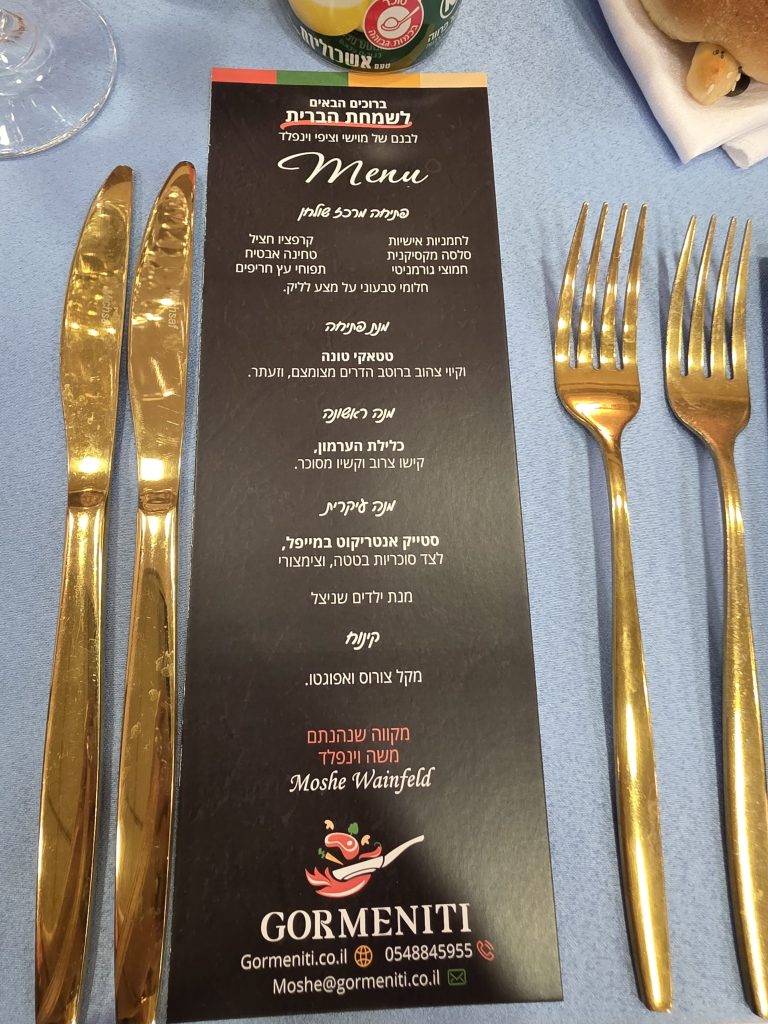 סוכר
בכמות גבוהה
טעם אשכוליות
ברוכים הבאים
לשמחת הברית
לבנם של מוישי וציפי וינפלד
Menu
פתיחה מרכז שולחן
לחמניות אישיות קרפציו חציל
סלסה מקסיקנית טחינה אבטיח
חמוצי גורמניטי תפוחי עץ חריפים
חלומי טבעוני על מצע לליק.
מנת פתיחה
טטאקי טונה
וקיוי צהוב ברוטב הדרים מצומצם, וזעתר.
מנה ראשונה
כלילת הערמון,
קישו צרוב וקשיו מסוכר.
מנה עיקרית
סטייק אנטריקוט במייפל,
לצד סוכריות בטטה, וצימצורי
מנת ילדים שניצל
קינוח
מקל צורוס ואפוגטו.
מקווה שנהנתם
משה וינפלד
Moshe Wainfeld
GORMENITI
Gormeniti.co.il 0548845955
Moshe@gormeniti.co.il